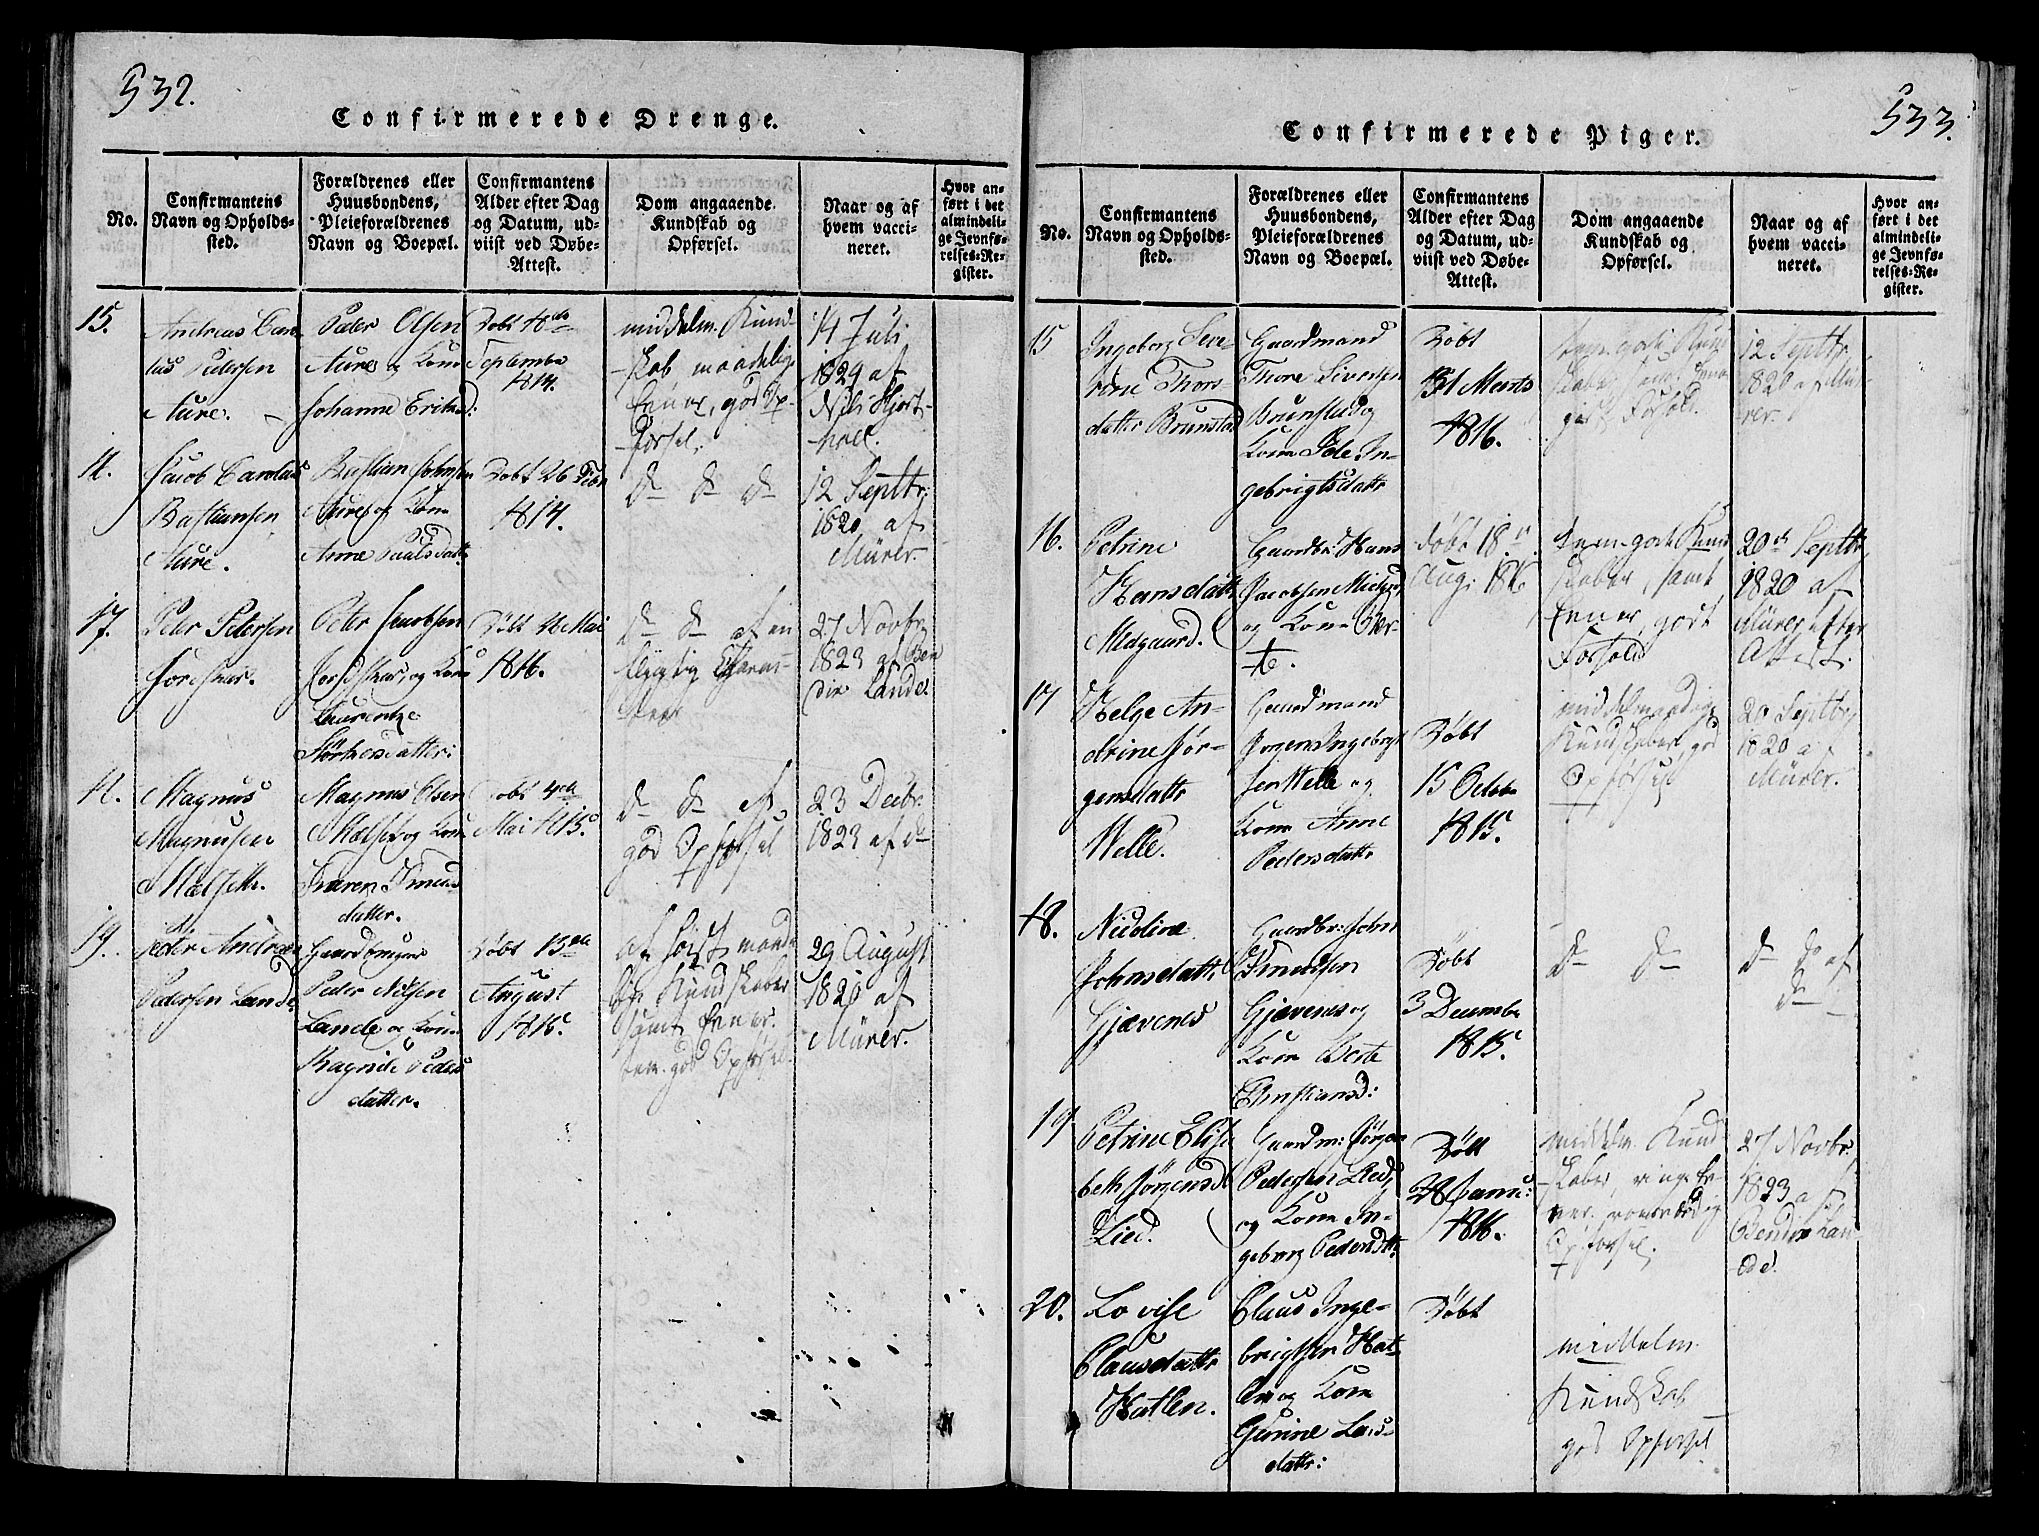 532.
Confirmerede Drenge.
No.
Confirmantens
Navn og Opholds-
sted.
Forældrenes eller
Huusbondens,
Pleieforældrenes
Navn og Boepæl.
Confirmantens
Alder efter Dag
og Datum, ud-
viist ved Døbe-
Attest.
Dom angaaende
Kundskab og
Opførsel.
Naar og af
hvem vacci-
neret.
Hvor an-
ført i det
almindeli-
ge Jevnfø-
relses-Re-
gister.
15.
Andreas Caro-
lus Petersen
Aure.
Peder Olsen
Aure og Kone
Johanne
Døbt
September
1814.
middelm. Kund-
skab maadelig
Evner, god Op-
førsel.
14 Juli
1829 af
Nils Hjort-
hoel.
Jacob Carolus
Bastiansen
Aure.
Bastian Johnsen
Aure og Kone
Anne Paalsdatter
Døbt 26 Febr
1814.
D- D- D-
12 Septbr:
1820 af
Mürer.
17.
Peter Petersen
Peter Jacobsen
og Kone
Laurentze
Døbt Mai
1816.
D- D- af en
27 Novbr
1823 af Ben
dix Lande.
Magnus
Magnusen
Mælsetr.
Magnus Olsen
Mælset og Kone
Karen
datter.
Døbt
Mai 1815
D- D- af
god Opførsel
23 Decbr:
1823 af D-
19.
Peder Andreas
Pedersen Lande
Gaardbruger
Peder Nilsen
Lande og Kone
Ragnilde Peders
datter.
Døbt 13de
August
1815.
af høist maade-
Kundskaber
samt Evner.
tem. god Opførsel.
29 August
1820 af
Mürer.
533.
Confirmerede Piger.
No.
Confirmantens
Navn og Opholds-
sted.
Forældrenes eller
Huusbondens,
Pleieforældrenes
Navn og Boepæl.
Confirmantens
Alder efter Dag
og Datum, ud-
viist ved Døbe-
Attest.
Dom angaaende
Kundskab og
Opførsel.
Naar og af
hvem vacci-
neret.
Hvor an-
ført i det
almindeli-
ge Jevnfø-
relses-Re-
gister.
15
Ingeborg Seve-
rine Thors
datter Brunstad
Gaardmand
Thore Sivertsen
Brunstad og
Kone In-
gebrigtsdattr
Døbt
31 Marts
1816.
12 Septbr
1820 af Mü-
rer.
16.
Petrine
Hansdattr
Midgaard.
Gaardbr: Hans
Jacobsen
og Kone
Døbt 18
Aug: 1816
tem. godt Kund
skaber, samt
Evner, godt
Forhold
20de Septbr
1820 af
Mürer efter
Attest.
17
Helge An-
drine Jør-
gensdattr
Welle.
Gaardmand
Jørgen Ingebrigt
sen Welle og
Kone Anne
Pedersdattr
Døbt
15 October
1815.
middelmaadige
Kundskaber, god
Opførsel
20 Septbr
1820 af
Mürer.
18.
Nicoline
Johnsdattr
Gjævenes
Gaardbr: John
Gjævenes og
Kone Berte
Christiansd:
Døbt
3 December
1815.
D- D-
D- D- af
D-
19
Petrine Elisa
beth Jørgensd
Lied.
Gaardm: Jørgen
Pedersen Lied,
og Kone In-
geborg Pedersdtr
Døbt
28 Janu:
1816.
middelm. Kund
skaber, ringe Ev-
ner.
Opførsel.
27 Novbr:
1823 af
Bendix Lan-
de.
20.
Lovise
Clausdattr
Hatlen.
Claus Inge-
brigtsen Hat-
len og Kone
Gurine Lars-
dattr:
Døbt
middelm.
Kundskab
god Opførsel